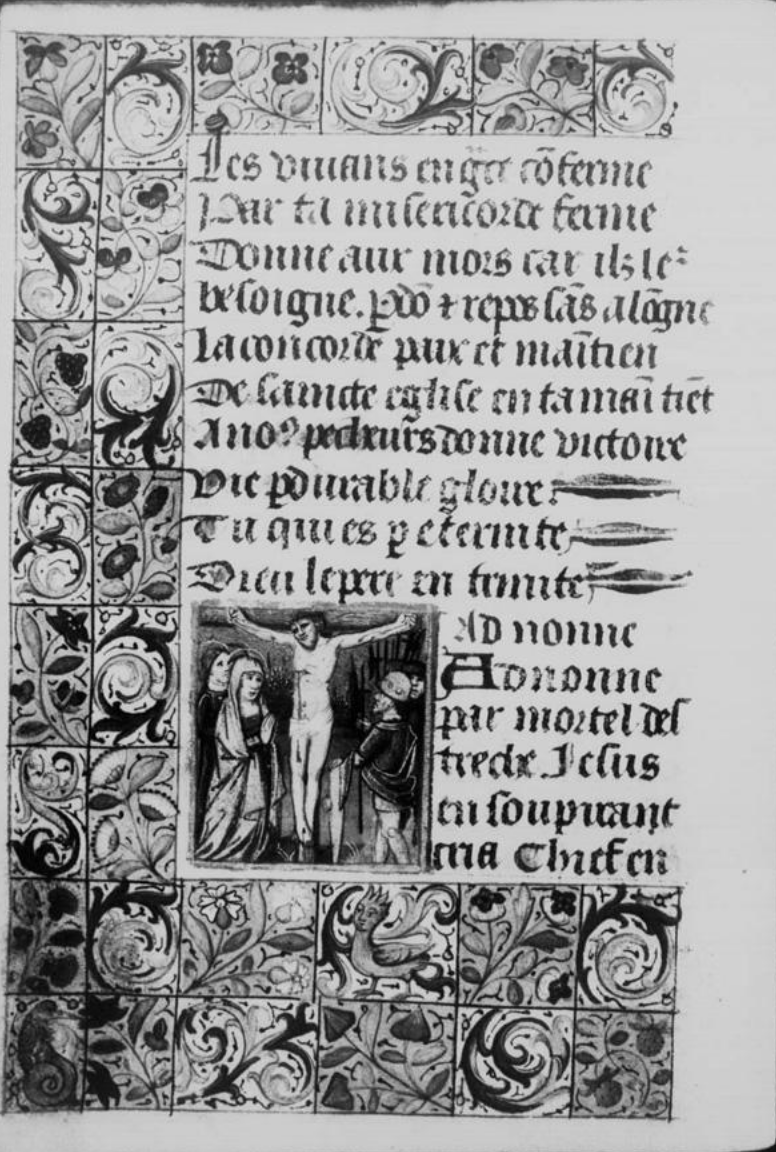 Les viuans en g̃ce cõferme
Par ta misericorde ferme
Donne aux mors car ilz le
besoigne. pdõ ⁊ repos sãs alõgne
La concorde paix et maĩtien
De saincte eglise en ta maĩ tiẽt
A noꝰ pecheurs donne victoire
Vie pdurable gloire.
Tu qui es p eternite
Dieu le pere en trinite
Ad nonne
Ad nonne
par mortel des
treche Jesus
en soupirant
cria Thief en